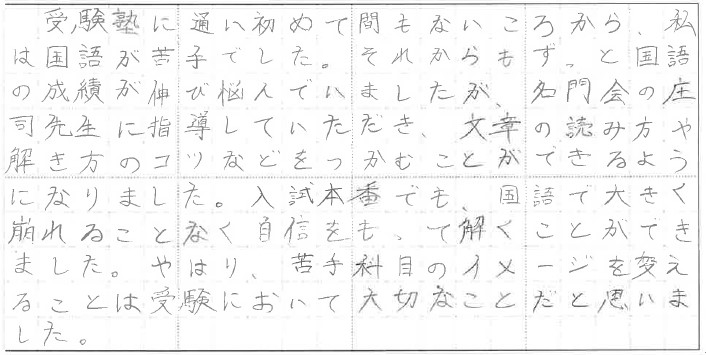 受験塾に通い初めて間もないころから、私
は国語が苦手でした。それからもずっと国語
の成績が伸び悩んでいましたが、名門会の庄
司先生に指導していただき、文章の読み方や
解き方のコツなどをつかむことができるよう
になりました。入試本番でも、国語で大きく
崩れることなく自信をもって解くことができ
ました。やはり、苦手科目のイメージを変え
ることは受験において大切なことだと思いま
した。